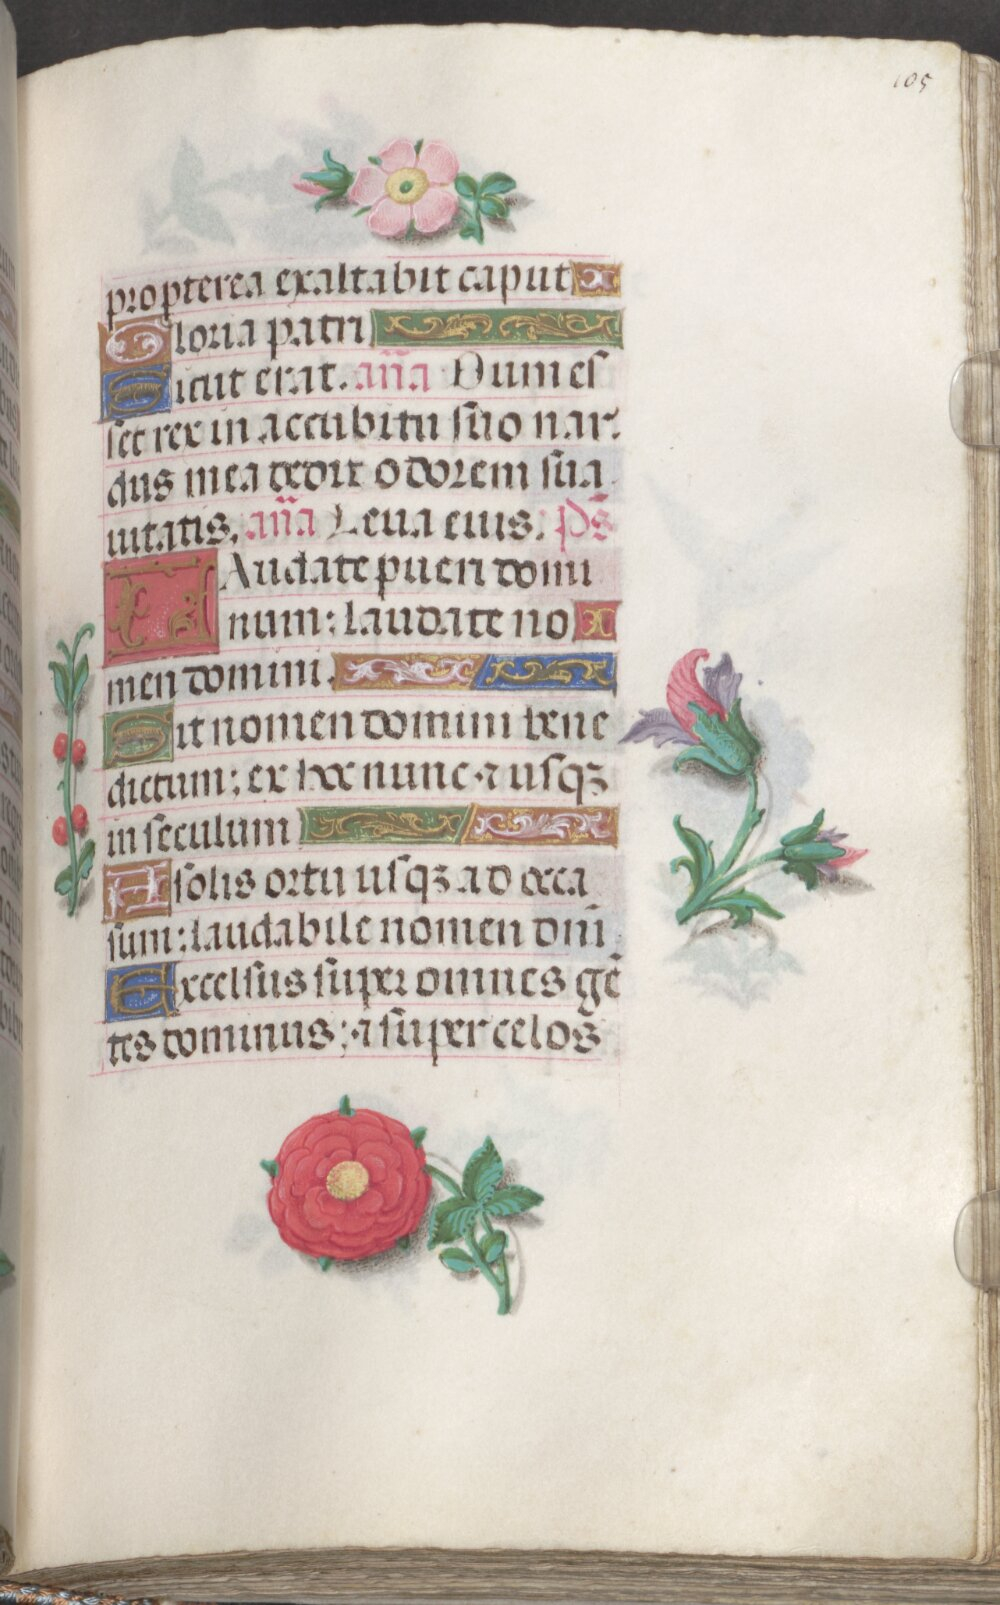 105
propterea exaltabit caput
Gloria patri
Sicut erat. añа Dum es
set rex in accubitu suo nar
dus mea dedit odorem sua
uitatis. aña Leua eius. Ps̃
LAudate pueri domi
num: laudate no
men domini.
Sit nomen domini bene
dictum: ex hoc nunc ⁊ usqꝫ
in seculum
A solis ortu usqꝫ ad occa
sum: laudabile nomen dñi
Excelsus super omnes gē
tes dominus: ⁊ super celos